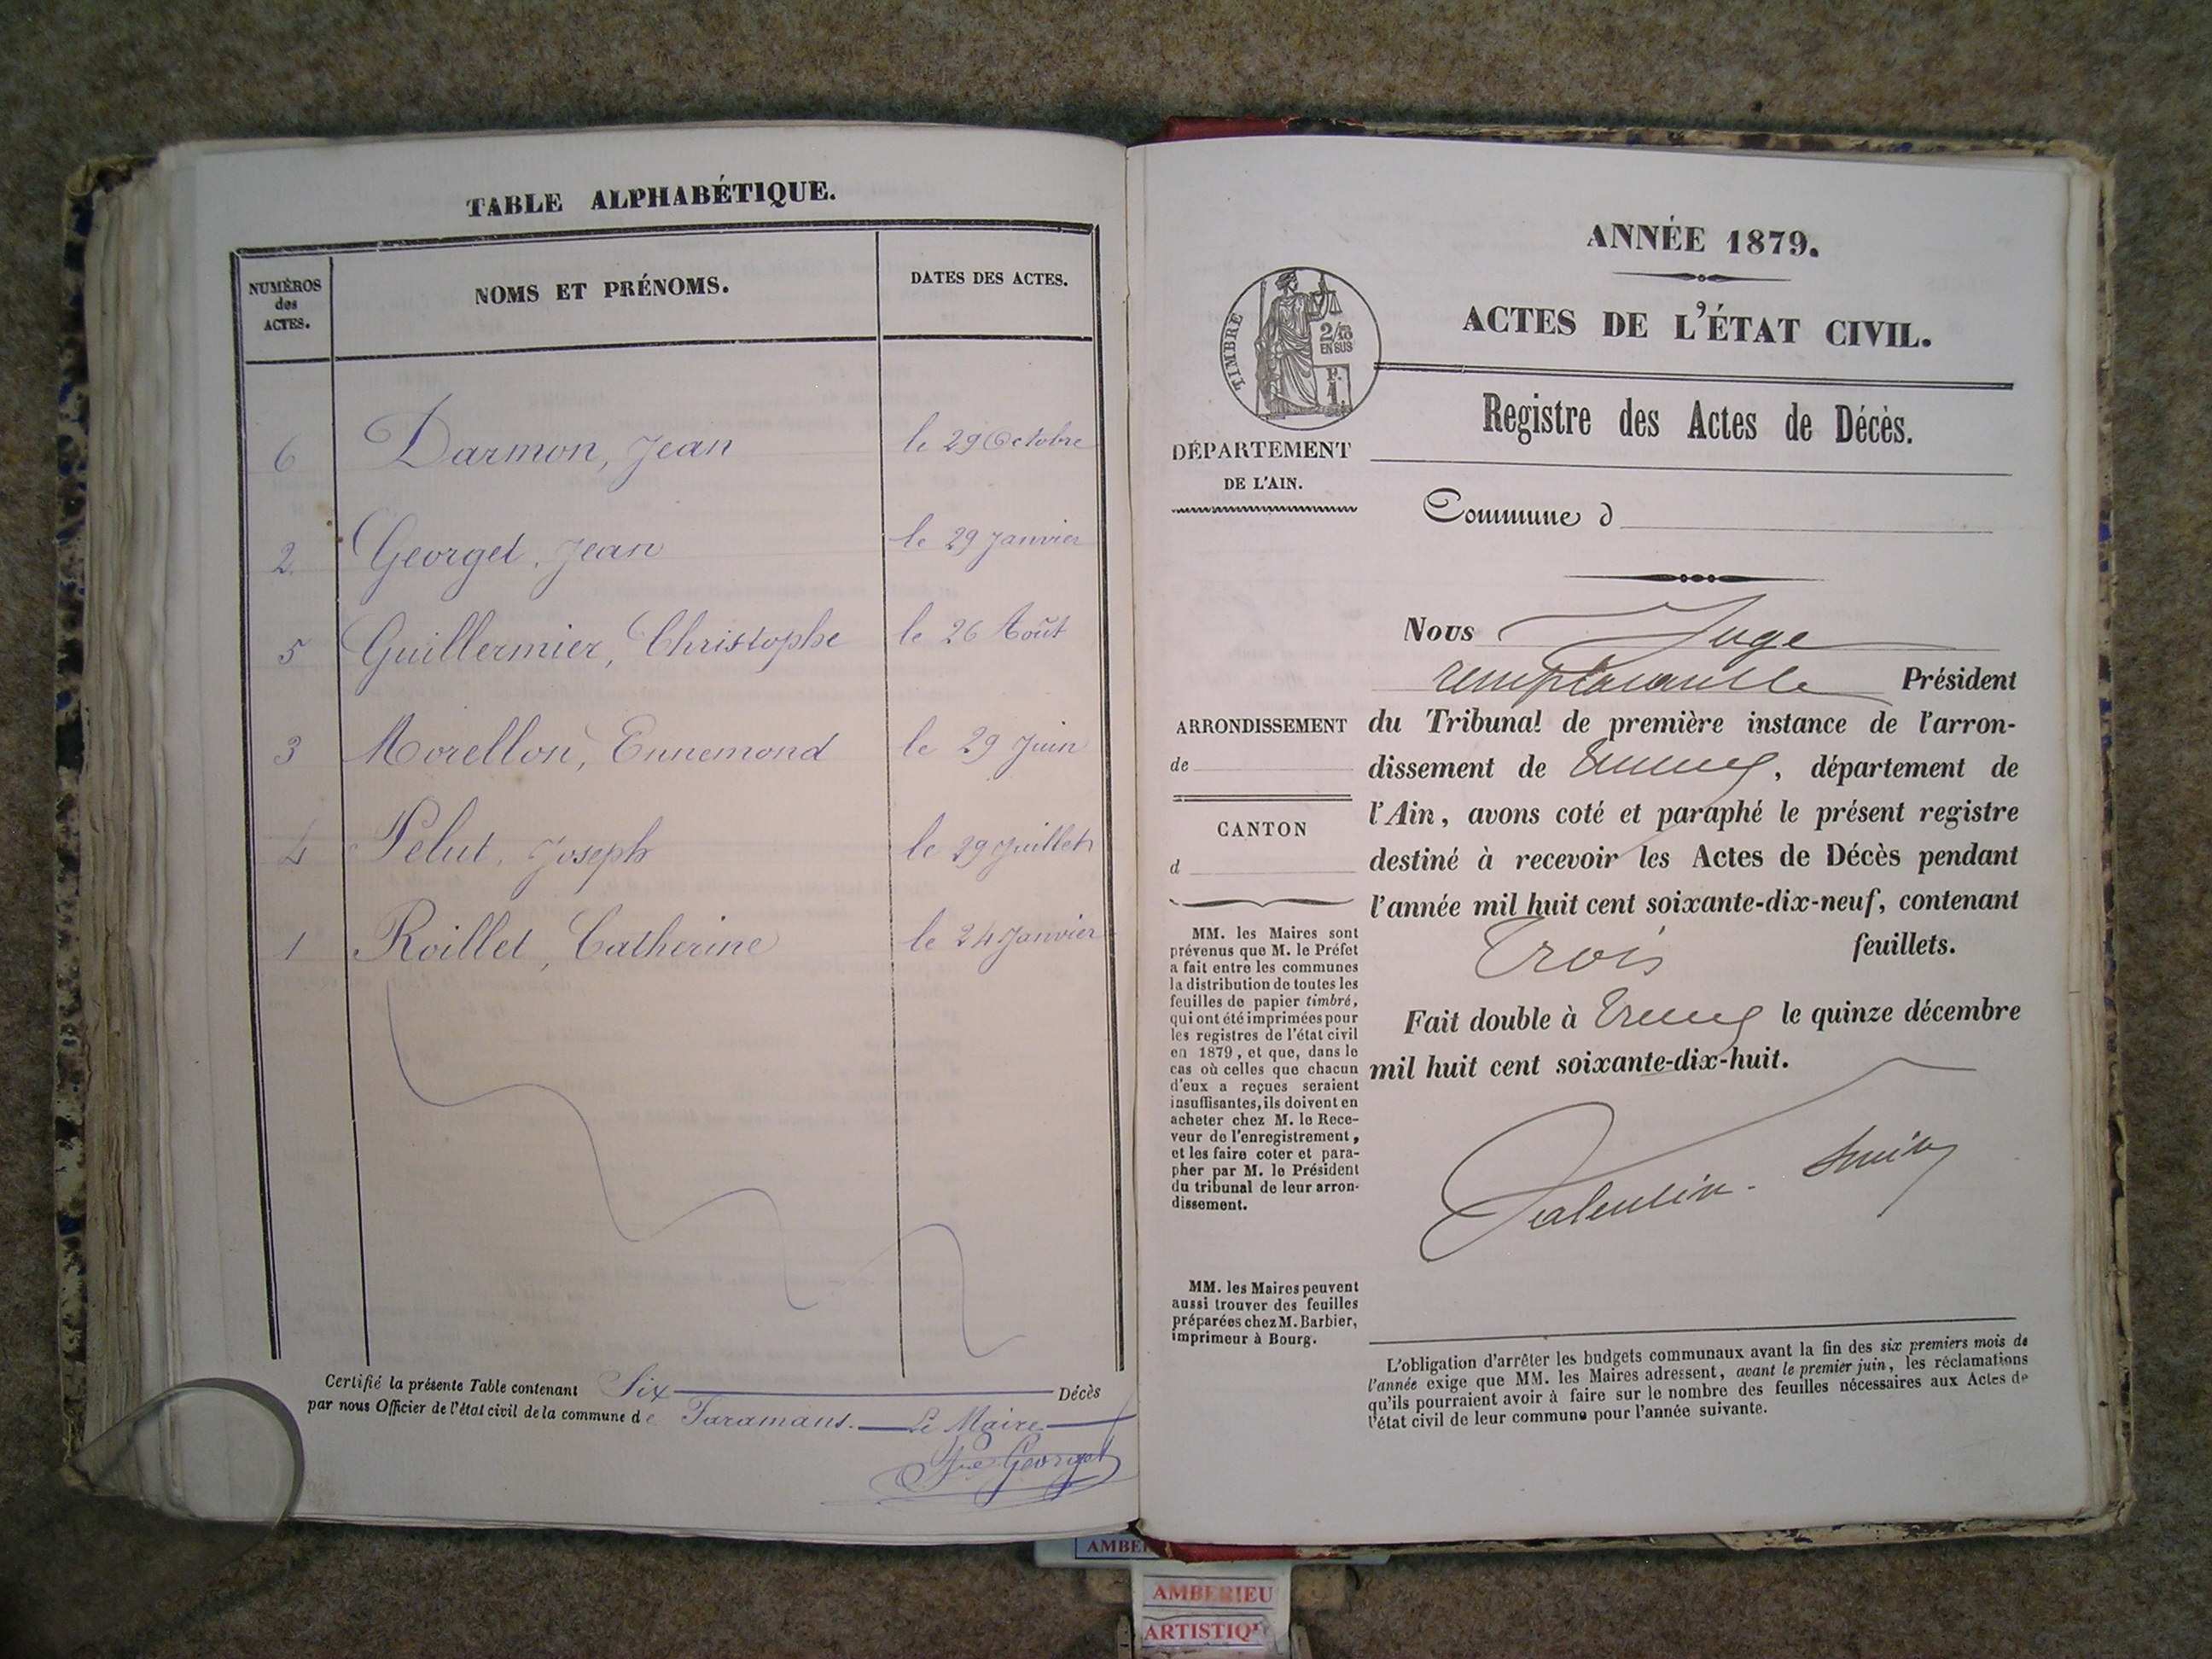 TABLE ALPHABÉTIQUE.
NUMÉROS
des
ACTES.
NOMS ET PRÉNOMS.
DATES DES ACTES.
6 Darmon, Jean le 29 Octobre
2 Georget, Jean le 29 Janvier
5 Guillermier, Christophe le 26 Août
3 Morellon, Ennemond le 29 Juin
4 Pelut, Joseph le 29 Juillet
1 Roillet, Catherine le 24 Janvier
Certifié la présente Table contenant Six Décès
par nous Officier de l'état civil de la commune de Faramans. Le Maire
Georget
ANNÉE 1879.
ACTES DE L'ÉTAT CIVIL.
TIMBRE
2/10
EN SUS
Registre des Actes de Décès.
DÉPARTEMENT
DE L'AIN.
Commune d
Nous Juge
remplaçant le Président
du Tribunal de première instance de l'arron-
dissement de Trévoux, département de
l'Ain, avons coté et paraphé le présent registre
destiné à recevoir les Actes de Décès pendant
l'année mil huit cent soixante-dix-neuf, contenant
Trois feuillets.
Fait double à Trévoux le quinze décembre
mil huit cent soixante-dix-huit.
Valentin-Smith
ARRONDISSEMENT
de
CANTON
d
MM. les Maires sont
prévenus que M. le Préfet
a fait entre les communes
la distribution de toutes les
feuilles de papier timbré,
qui ont été imprimées pour
les registres de l'état civil
en 1879, et que, dans le
cas où celles que chacun
d'eux a reçues seraient
insuffisantes, ils doivent en
acheter chez M. le Rece-
veur de l'enregistrement,
et les faire coter et para-
pher par M. le Président
du tribunal de leur arron-
dissement.
MM. les Maires peuvent
aussi trouver des feuilles
préparées chez M. Barbier,
imprimeur à Bourg.
L'obligation d'arrêter les budgets communaux avant la fin des six premiers mois de
l'année exige que MM. les Maires adressent, avant le premier juin, les réclamations
qu'ils pourraient avoir à faire sur le nombre des feuilles nécessaires aux Actes de
l'état civil de leur commune pour l'année suivante.
AMBERIEU
ARTISTIQ